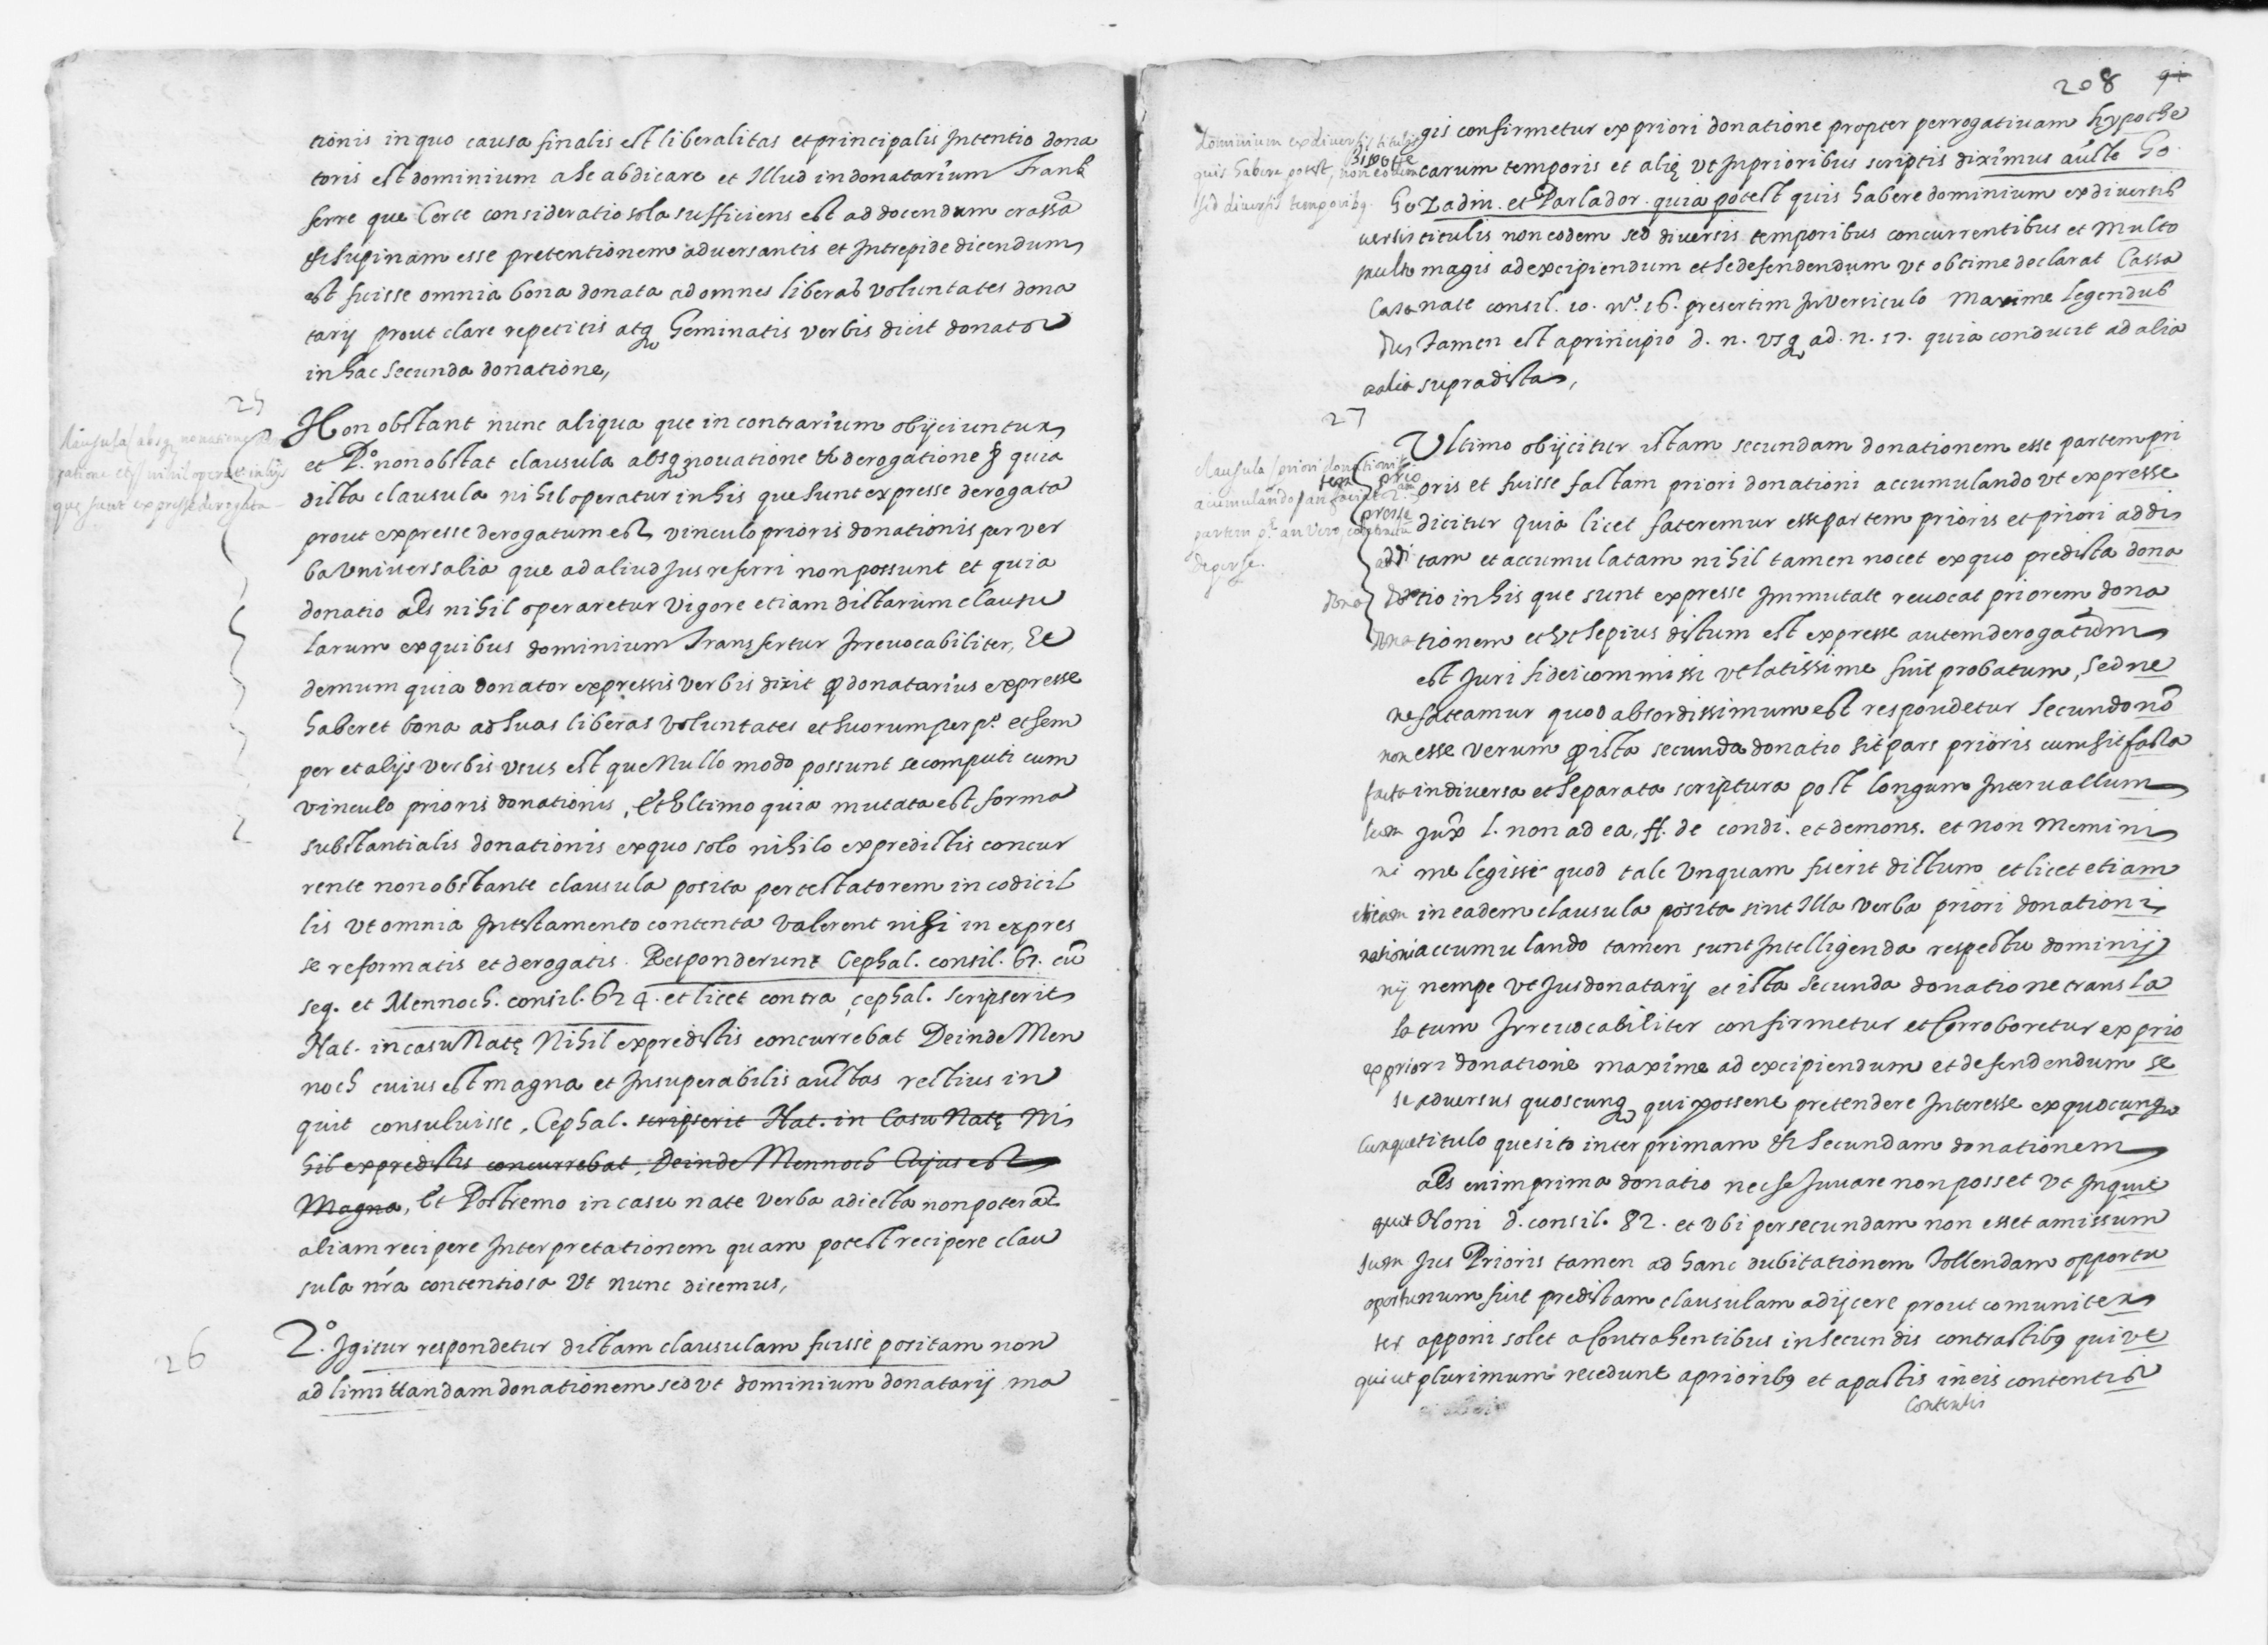 tionis in quo causa finalis est liberalitas et principalis Intentio dona
toris est dominium a se abdicare et Illud in donatarium Trans
ferre que Certe consideratio sola sufficiens est ad docendum crassã
et supinam esse pretentionem adversantis et Intrepide dicendum
est fuisse omnia bona donata ad omnes liberas voluntates dona
tarij prout clare repetitis atq Geminatis verbis dicit donator
in hac secunda donatione,
25
Non obstant nunc aliqua que in contrarium obijciuntur
et P.º non obstat clausula absq novatione et derogatione quia
dicta clausula nihil operatur in his que sunt expresse derogata
prout expresse derogatum est vinculo prioris donationis per ver
ba Universalia que ad aliud Jus referri non possunt et quia
donatio als nihil operaretur vigore etiam dictarum clausu
larum ex quibus dominium Transfertur Irrevocabiliter, Et
demum quia donator expressis verbis dixit q donatarius expresse
haberet bona ad suas liberas voluntates et suorum perpº et sem
per et alijs verbis usus est que Nullo modo possunt se computi cum
vinculo prioris donationis, Et Ultimo quia mutata est forma
substantialis donationis ex quo solo nihilo ex predictis concur
rente non obstante clausula posita per testatorem in codicil
lis ut omnia In testamento contenta valerent nisi in expres
se reformatis et derogatis. Responderunt Cephal. consil. 67. cũ
seq. et Mennoch. consil. 624. et licet contra cephal. scripserit
Nat. in casu Natę Nihil ex predictis concurrebat Deinde Men
noch cuius est magna et Insuperabilis auctas rectius in
quit consuluisse, Cephal. scripserit Nat. in Casu Natę Ni
hil ex predictis concurrebat, Deinde Mennoch Cujus est
Magna, Et Postremo in casu nate verba adiecta non poterat
aliam recipere Interpretationem quam potest recipere clau
sula nr̃a contentiosa Ut nunc dicemus,
26
2.º Igitur respondetur dictam clausulam fuisse positam non
ad limittandam donationem sed ut dominium donatarij ma
Clausula absq novatione
nihil operatur in his
que sunt expresse derogata
208
gis confirmetur ex priori donatione propter perrogativam hypothe
carum temporis et alię ut In prioribus scriptis diximus auctte Go
Gozadin. et Parlador. quia potest quis habere dominium ex diversis
versis titulis non eodem sed diversis temporibus concurrentibus et multo
multo magis ad excipiendum et se defendendum ut obtime declarat Cassa
Casanate consil. 10. nº. 16. presertim In versiculo Maxime legendus
dus Tamen est a principio d. n. usq ad. n. 17. quia conducit ad alia
alia supradicta,
27
Ultimo obijcitur istam secundam donationem esse partem pri
oris et fuisse factam priori donationi accumulando ut expresse
dicitur quia licet fateremur esse partem prioris et priori addi
addi tam et accumulatam nihil tamen nocet ex quo predicta dona
dona tio in his que sunt expresse Immutate revocat priorem dona
dona tionem et ut sepius dictum est expresse autem derogatum
est Juri fideicommissi ut latissime fuit probatum, Sed ne
ne fateamur quod absordissimum est respondetur Secundo nõ
non esse verum q ista secunda donatio sit pars prioris cum sit facta
facta in diversa et separata scriptura post longum Intervallum
lum Jux l. non ad ea, ff. de condi. et demons. et non Memini
ni me legisse quod tale Unquam fuerit dictum et licet etiam
etiam in eadem clausula posita sint Illa verba priori donationi
nationi accumulando tamen sunt Intelligenda respectu dominij
nij nempe ut Jus donatarij et ista secunda donatione transla
latum Irrevocabiliter confirmetur et Corroboretur ex prio
ex priori donatione maxime ad excipiendum et defendendum se
se adversus quoscunq qui possent pretendere Interesse ex quocunq
cunque titulo quesito inter primam et secundam donationem
als enim prima donatio nec se Juvare non posset ut Inquit
quit Noni d. consil. 82. et ubi per secundam non esset amissum
sum Jus Prioris tamen ad hanc dubitationem Tollendam opportu
oportunum fuit predictam clausulam adijcere prout comuniter
ter apponi solet a Contrahentibus in secundis contractibq qui ut
qui ut plurimum recedunt a prioribq et a pactis in eis contentis
contentis
dominium ex diversis titulis
quis habere potest, non eodem
sed diversis temporibq
clausula priori donationi
acumulando an faciat
partem